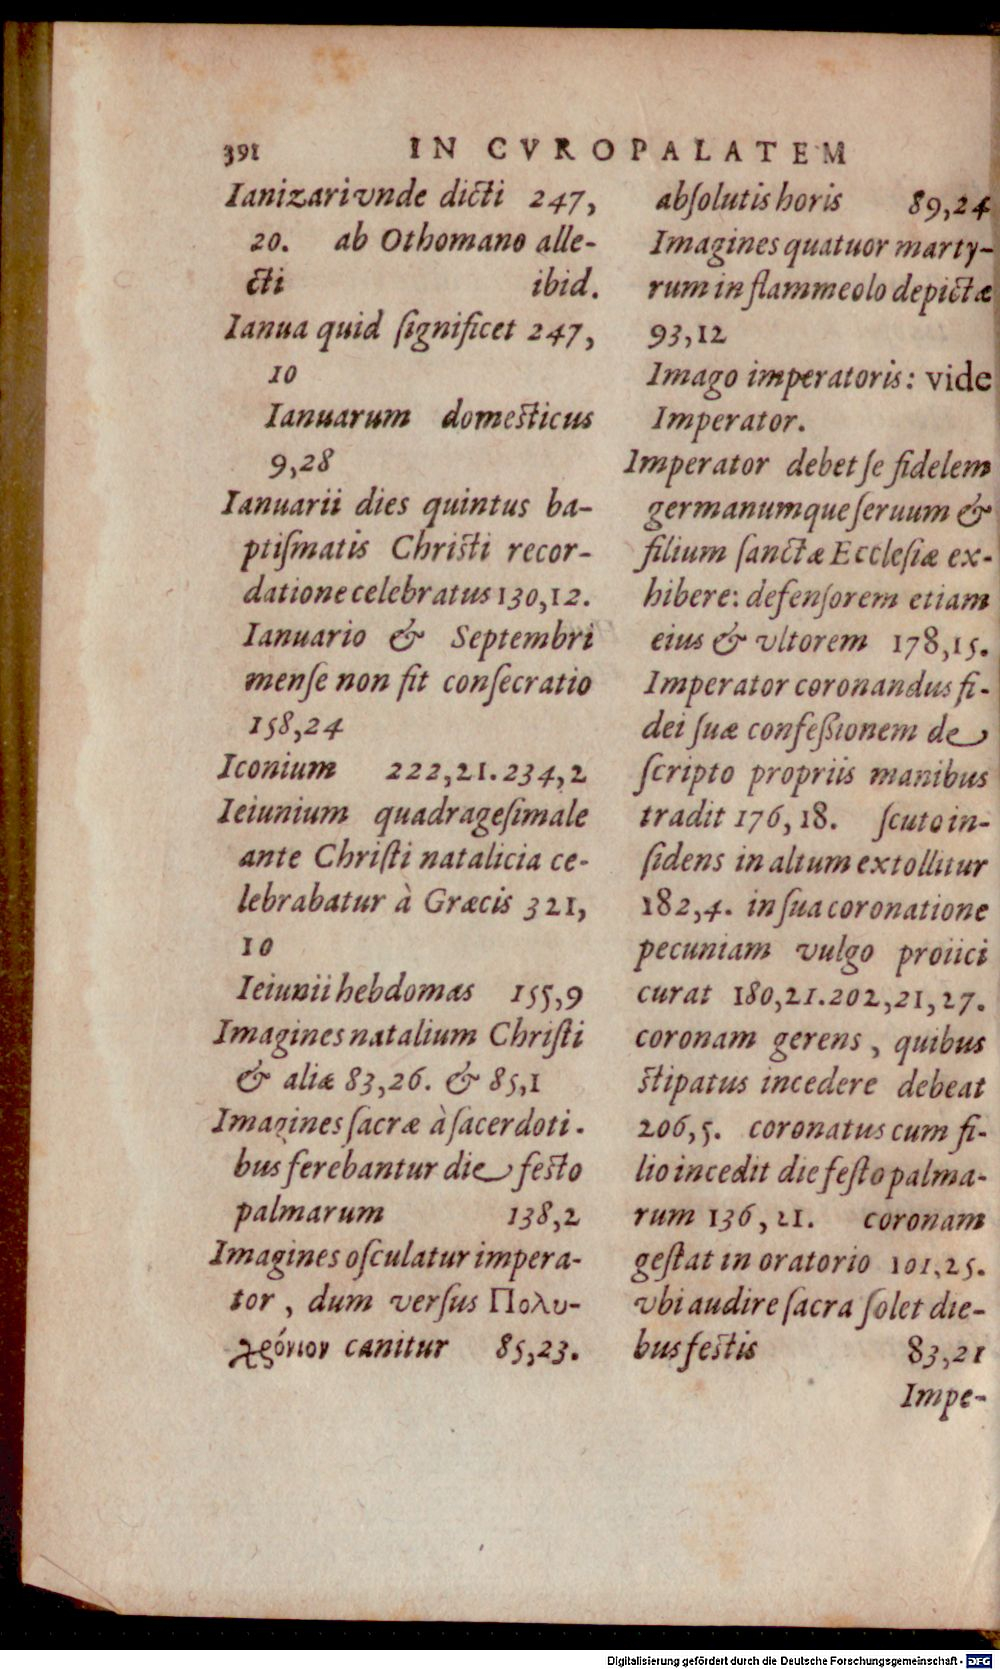 391 IN CVROPALATEM
Ianizari vnde dicti 247,
20. ab Othomano alle-
cti ibid.
Ianua quid ſignificet 247,
10
Ianuarum domeſticus
9,28
Ianuarii dies quintus ba-
ptiſmatis Chriſti recor-
datione celebratus 130,12.
Ianuario & Septembri
menſe non fit conſecratio
158,24
Iconium 222,21.234,2
Ieiunium quadrageſimale
ante Chriſti natalicia ce-
lebrabatur à Græcis 321,
10
Ieiunii hebdomas 155,9
Imagines natalium Chriſti
& aliæ 83,26. & 85,1
Imagines ſacræ à ſacerdoti-
bus ferebantur die feſto
palmarum 138,2
Imagines oſculatur impera-
tor, dum verſus Πολυ-
χρόνιον canitur 85,23.
abſolutis horis 89,24
Imagines quatuor marty-
rum in flammeolo depictæ
93,12
Imago imperatoris: vide
Imperator.
Imperator debet ſe fidelem
germanumque ſeruum &
filium ſanctæ Eccleſiæ ex-
hibere: defenſorem etiam
eius & vltorem 178,15.
Imperator coronandus fi-
dei ſuæ confeßionem de
ſcripto propriis manibus
tradit 176,18. ſcuto in-
ſidens in altum extollitur
182,4. in ſua coronatione
pecuniam vulgo proiici
curat 180,21.202,21,27.
coronam gerens, quibus
ſtipatus incedere debeat
206,5. coronatus cum fi-
lio incedit die feſto palma-
rum 136,21. coronam
geſtat in oratorio 101,25.
vbi audire ſacra ſolet die-
bus feſtis 83,21
Impe-
Digitalisierung gefördert durch die Deutsche Forschungsgemeinschaft - DFG